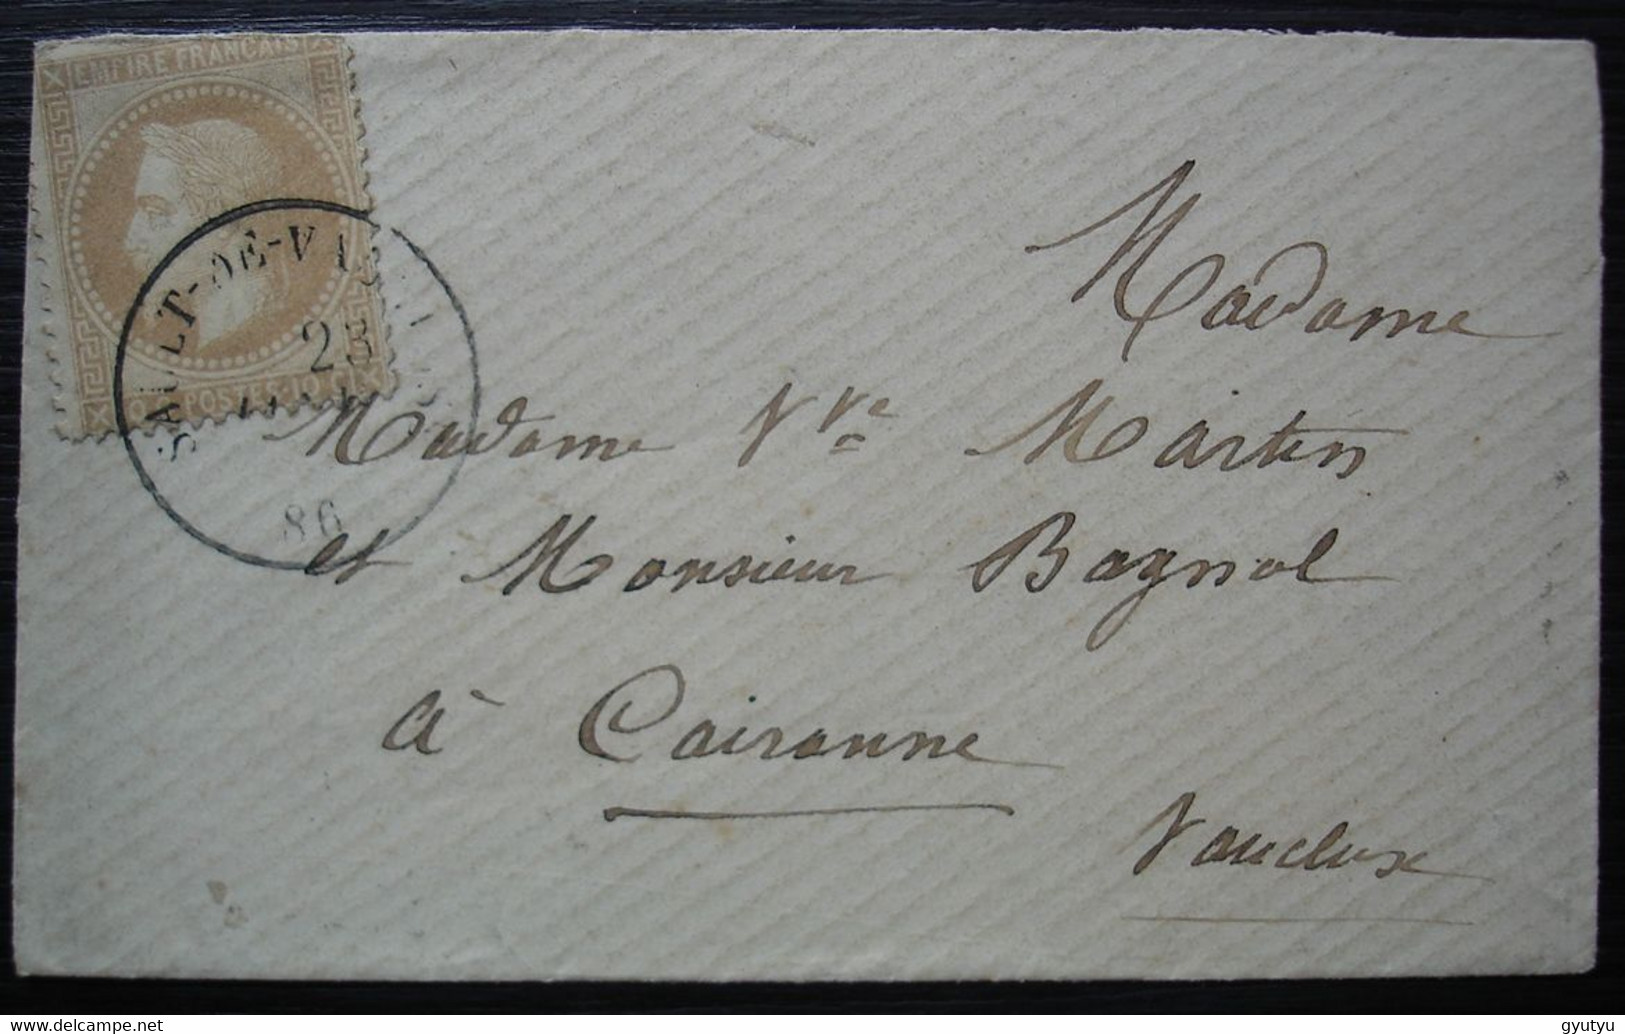 EMPIRE FRANÇAIS
POSTES 10 C
SAULT-DE-VAUCLUSE
23
86
Madame
Madame Vve Martin
et Monsieur Bagnol
à Cairanne
Vaucluse
gyutyu